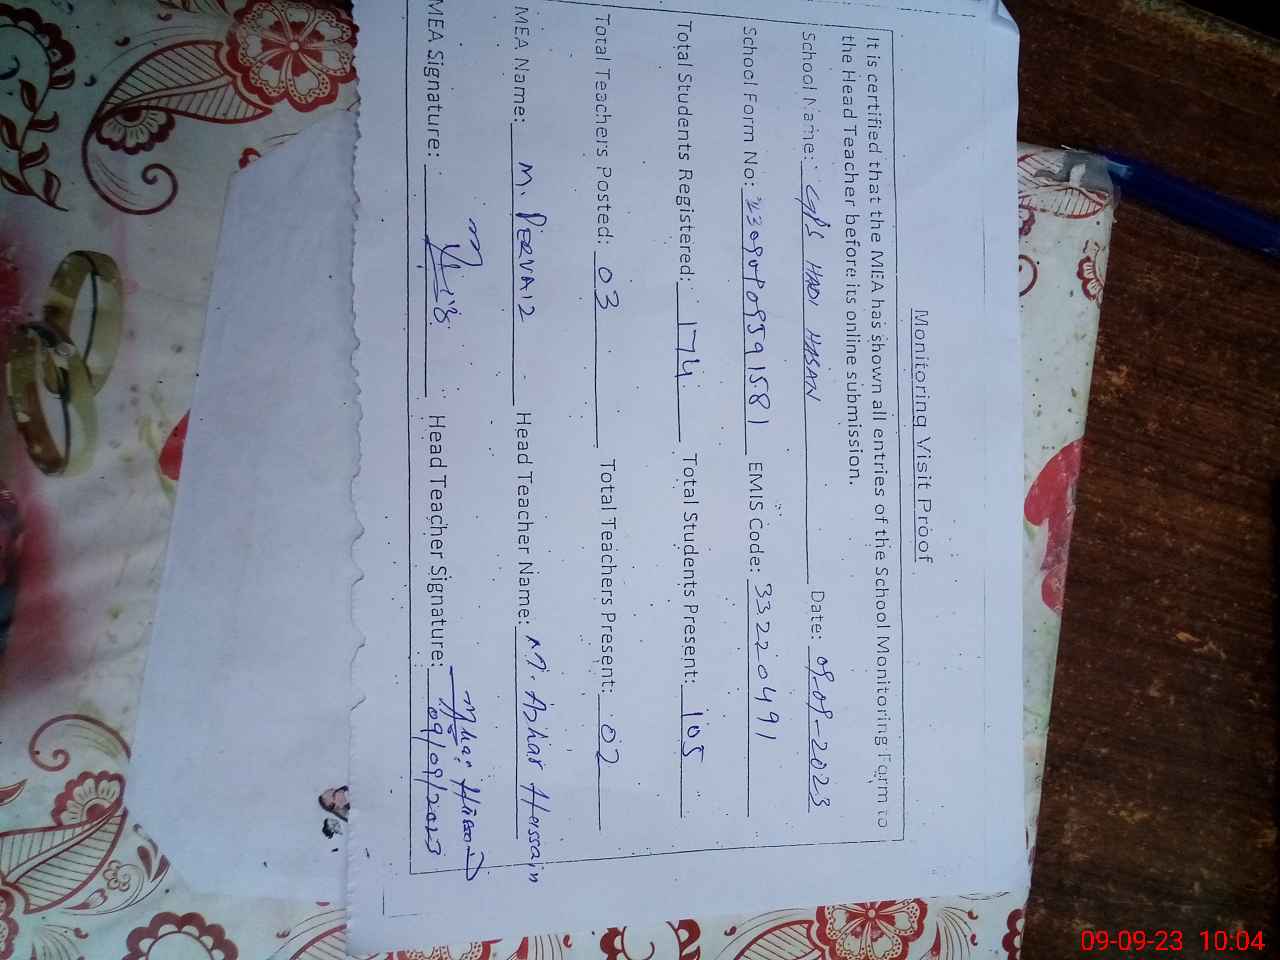 Monitoring Visit Proof
It is certified that the MEA has shown all entries of the School Monitoring Form to
the Head Teacher before its online submission.
School Name: GPS HADI HASAN Date: 09-09-2023
School Form No: EMIS Code: 33220491
Total Students Registered: 174 Total Students Present: 105
Total Teachers Posted: 03 Total Teachers Present: 02
MEA Name: M. PERVAIZ Head Teacher Name: M. Azhar Hassain
MEA Signature: Head Teacher Signature:
09/09/2023
09-09-23 10:04